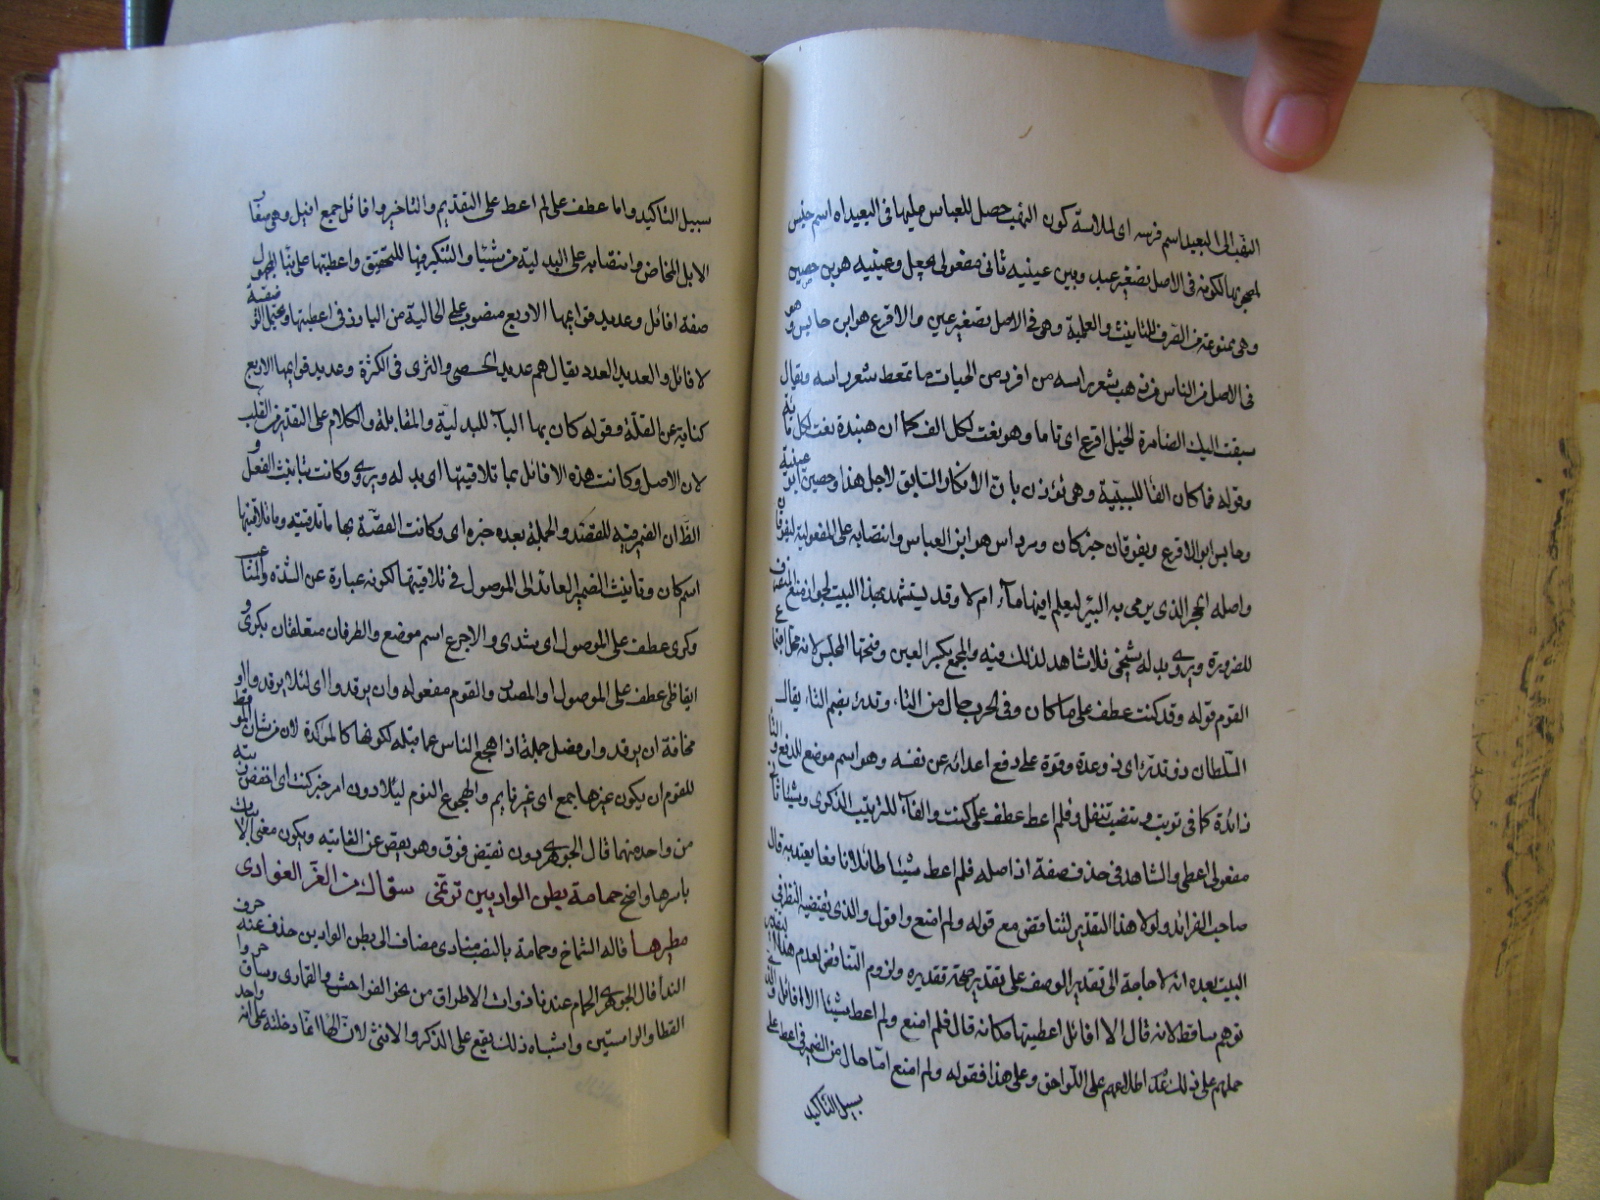 النهب الى البعيد اسم فرسه اى لملابسة كون النهب حصل للعباس عليها فى البعيداه اسم جنس
لكونه فى الاصل تصغير عبد وبين عيينيه ثانى مفعولى يجعل وعيينيه هو بن حصين
وهى ممنوعة من الصرف للتانيث والعلمية وهى فى الاصل تصغير عين والاقرع هو ابن حابس وهو
فى الاصل من الناس من ذهب شعر راسه من افة ومن الحيات ما تمعط شعر راسه ويقال
سبقت اليك الضامرة الخيل اقرع اى تاما وهو نعت لكل الف كما ان هنيدة نعت لكل مائة
وقوله فما كان الفا للسببية وهى تؤذن بان الانكار السابق لاجل هذا وحصين ابو عيينية
وحابس ابو الاقرع ويفوقان خبر كان ومرداس هو ابو العباس وانتصابه على المفعولية ليفوقان
واصله الحجر الذى يرمى به البير ليعلم افيها ماء ام لا وقد يستشهد بهذا البيت لجواز منع المنصرف
للضرورة ويروى بدله شيخى فلا شاهد لذلك فيه والمجمع بكسر العين وفتحها المجلس لانه محل اجتماع
القوم قوله وقد كنت عطف على ما كان وفى الحرب حال من التاء وتدرء بضم التاء يقال
السلطان ذو تدرء اى ذو عدة وقوة على دفع اعدائه عن نفسه وهو اسم موضع للدفع والتاء
زائدة كما فى ترتب وتنضب وتتفل وفلم اعط عطف على كنت والفاء للترتيب الذكرى وشيئا ثانى
مفعولى اعطى والشاهد فى حذف صفة اذ اصله فلم اعط شيئا طائلا نافعا يعتد به قال
صاحب الفرائد ولولا هذا التقدير لتناقض مع قوله ولم امنع واقول والذى يقتضيه النظر فى
البيت بعده انه لا حاجة الى تقدير الوصف على تقدير صحة تقديره ولزوم التناقض لعدم هذا
توهم ساقط لانه قال الا افائل اعطيتها مكانه قال فلم امنع ولم اعط شيئا الا افائل
حملهم على ذلك عدم اطلاعهم على اللواحق وعلى هذا فقوله ولم امنع اما حال من الضمير فى اعط على
سبيل التاكيد
سبيل التاكيد واما عطف على لم اعط على التقديم والتاخير وافائل جمع افيل وهى صغار
الابل المخاض وانتصابه على البدلية من شيئا والتنكير فيها للتحقير واعطيتها على بناء المجهول
صفة افائل وعديد قوايمها الاربع منصوب على الحالية من البارز فى اعطيتها ويحتمل
لافائل والعديد العدد يقال هم عديد الحصى والثرى فى الكثرة وعديد قوايمها الاربع
كناية عن القلة وقوله كان بما الباء للبدلية والمقابلة والكلام على التقدير من القلب
لان الاصل وكانت هذه الافائل بما تلاقيتها اى بدله ويروى وكانت بتانيث الفعل
الظ ان الضمير فيه للقصة والجملة بعده خبره اى وكانت القصة بها ما تلاقيته وما تلاقيتها
اسم كان وتانيث الضمير العائد الى الموصول فى تلاقيتها لكونه عبارة عن الشدة
وكرى عطف على الموصول اى شدى والاجرع اسم موضع والظرفان متعلقان بكرى و
ايقاظى عطف على الموصول او المصدر والقوم مفعوله وان يرقدوا اى لئلا يرقدوا او
مخافة ان يرقدوا وفصل جملة اذا هجع الناس عما قبله لكونها كالمؤكدة لان من شان الموقظ
للقوم ان يكون عند هاجع اى غير نايم والهجوع النوم ليلا دون امر خبر كنت اى اخفض رتبة
من واحد منهما قال الجوهرى دون نقيض فوق وهو يقصر عن الغاية ويكون
باسرها واضح حمامة بطن الواديين ترنمى سقاك من الغر الغوادى
مطيرها قاله الشماخ وحمامة بالنصب منادى مضاف الى بطن الوادين حذف عنه حرف
الندا قال الجوهرى الحمام عند العرب ذوات الاطواق من نحو الفواخت والقمارى وساق حر و
القطا والوراشين واشباه ذلك يقع على الذكر والانثى لان الهاء انما دخلته على انه واحد